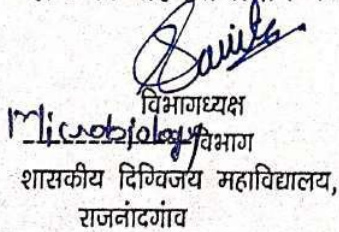 विभागध्यक्ष
Microbiology विभाग
शासकीय दिग्विजय महाविद्यालय,
राजनांदगांव